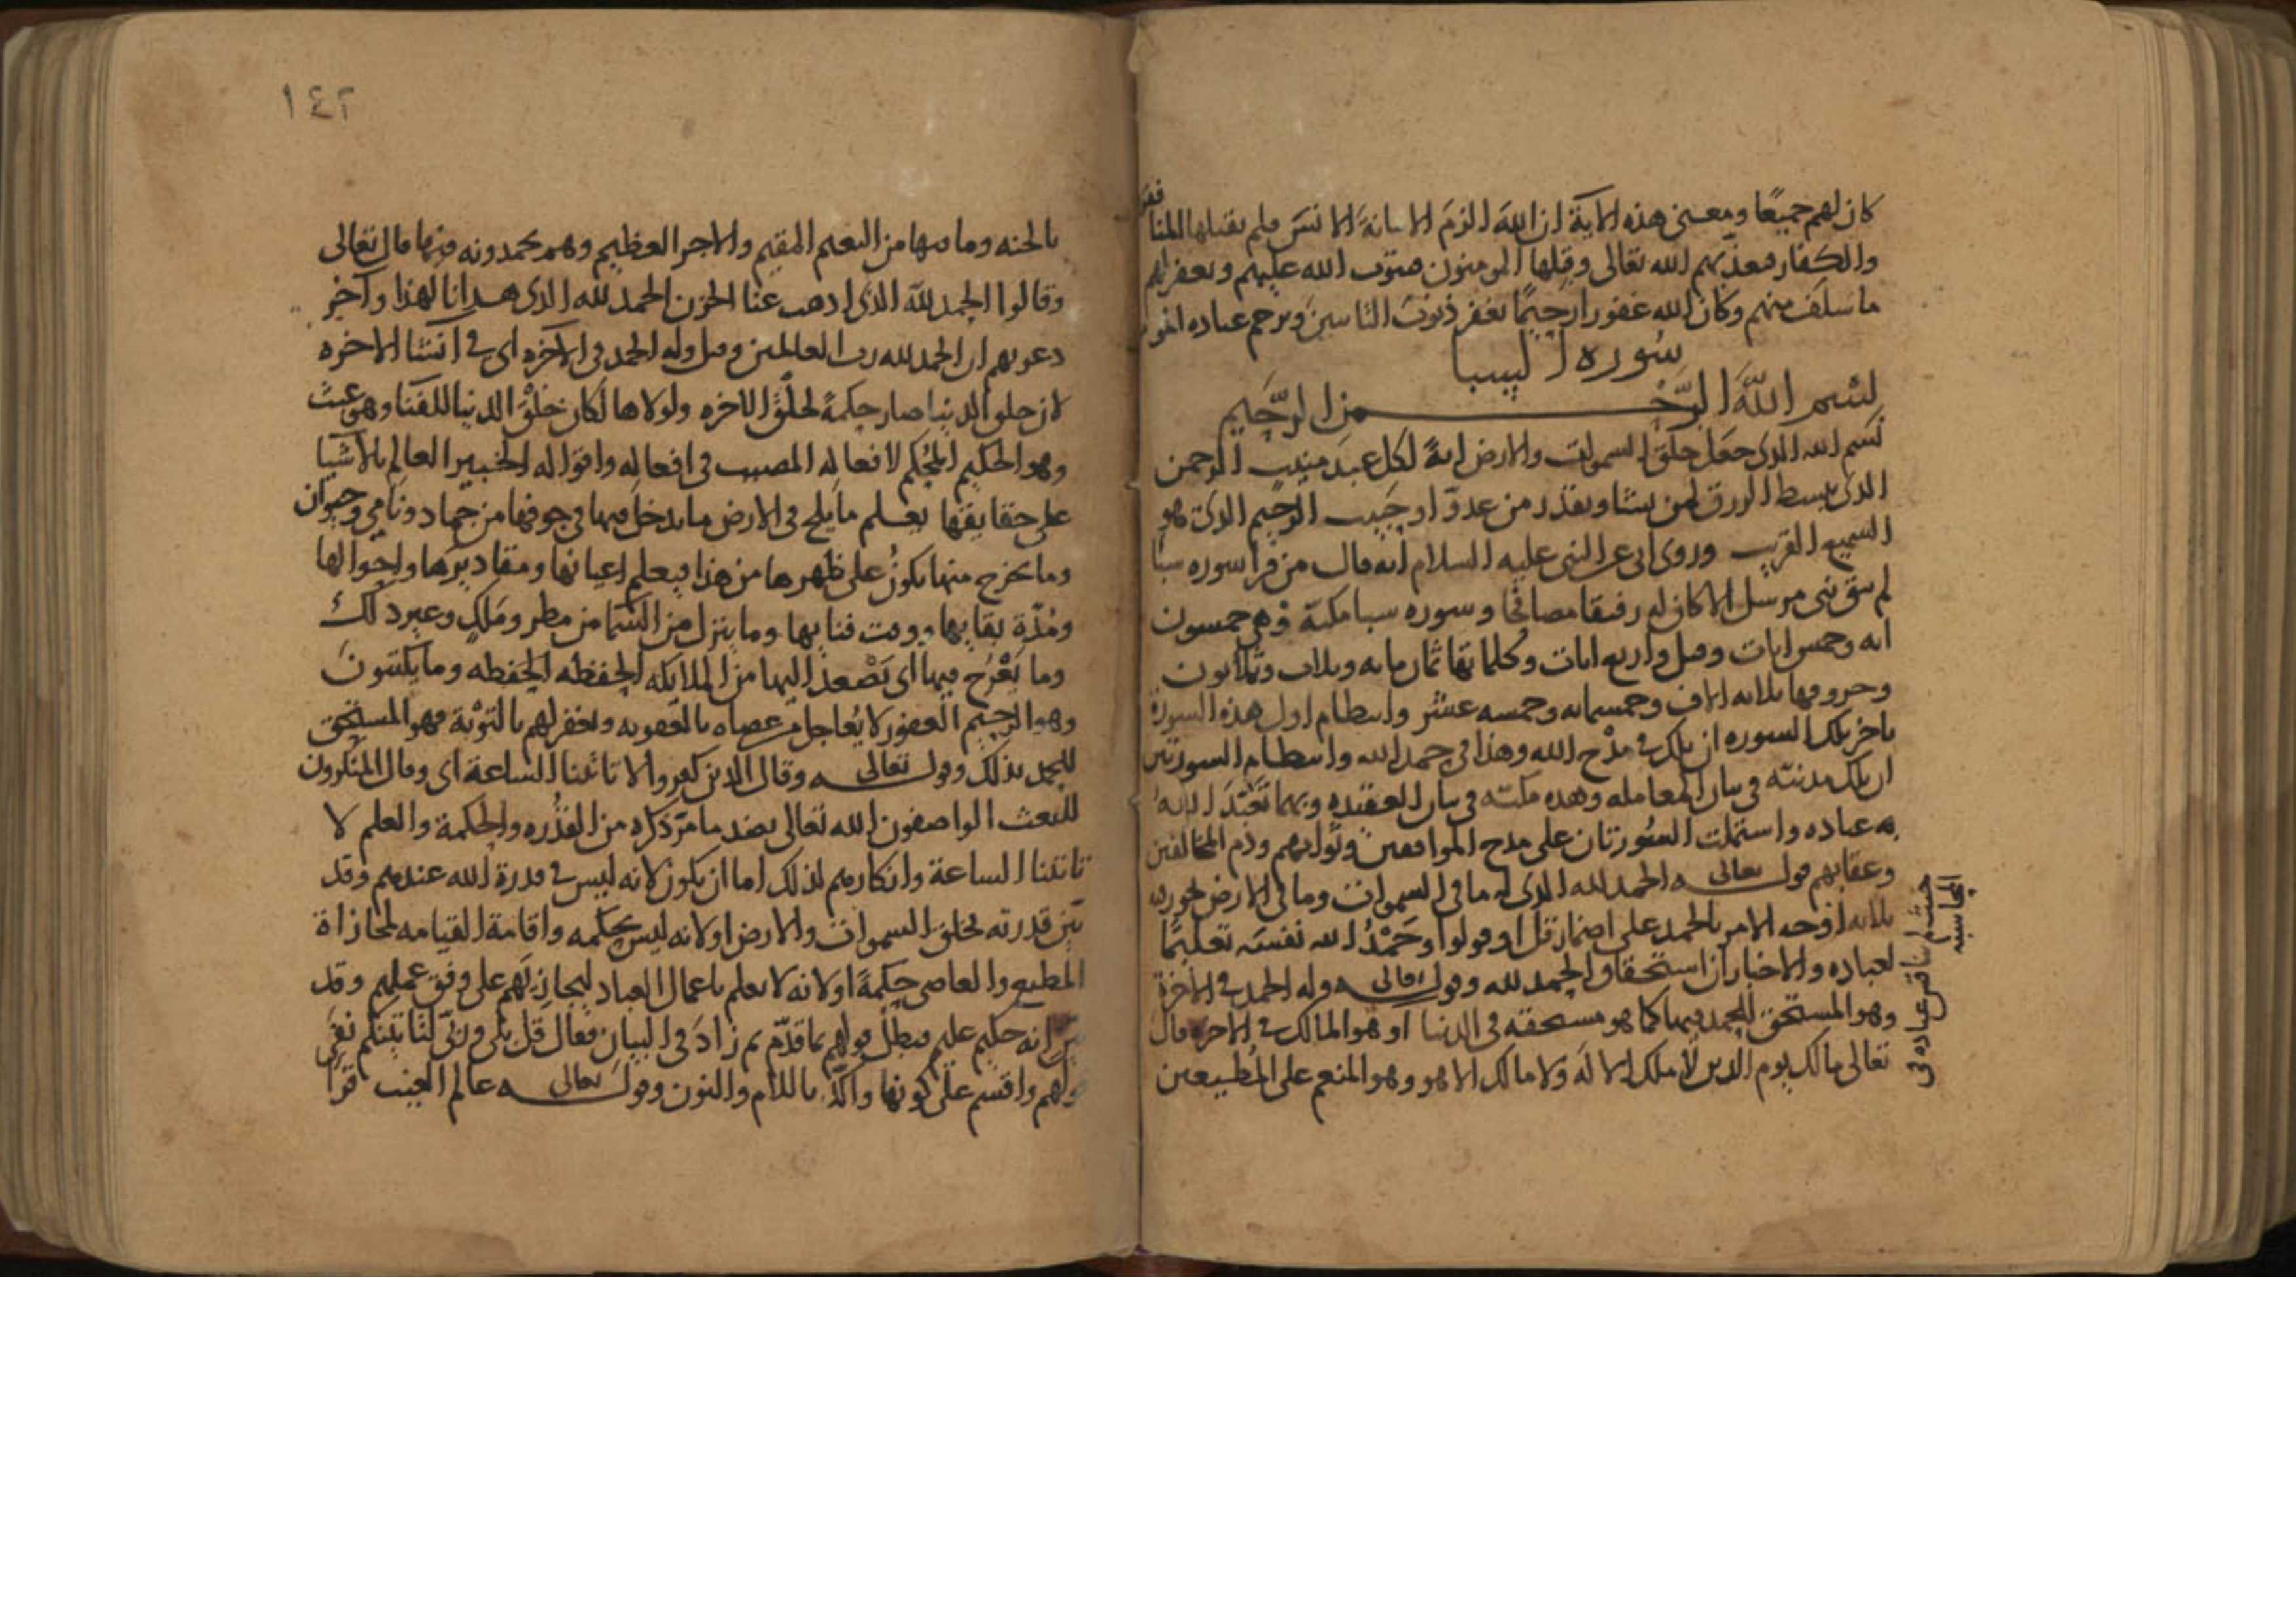 كان لهم جميعا ومعنى هذه الاية ان الله الزم الامانة الانس فلم يقبلها المنافقون
والكفار فعذبهم الله تعالى وقبلها المومنون فيتوب الله عليهم ويغفر لهم
ما سلف منهم وكان الله غفورا رحيما يغفر ذنوب التايبين ويرحم عباده
سوره السبا
بسم الله الرحمن الرحيم
بسم الله الذى جعل خلق السموات والارض اية لكل عبد منيب الرحمن
الذى يبسط الرزق لمن يشا ويقدر من عدو او حبيب الرحيم الذى هو
السميع القريب وروى ابى عن النبى عليه السلام انه قال من قرا سوره سبا
لم يبق نبى مرسل الا كان له رفيقا مصافحا وسوره سبا مكية وهى خمسون
ايه وخمس ايات وقيل واربع ايات وكلماتها ثمان مايه وثلاث وثلاثون
وحروفها ثلاثه الاف وخمسمايه وخمسه عشر وانتظام اول هذه السورة
باخر تلك السوره ان تلك فى مدح الله وهذا فى حمد الله وانتظام السورتين
ان تلك مدنية فى بيان المعامله وهذه مكية فى بيان العقيده وبهما تعبد الله
به عباده واشتملت السورتان على مدح الموافقين وثوابهم وذم المخالفين
وعقابهم قوله تعالى الحمد لله الذى له ما فى السموات وما فى الارض
ثلاثه اوجه الامر بالحمد على اضمار قل او قولوا وحمد الله نفسه تعليما
لعباده والاخبار ان استحقاق الحمد لله وقوله تعالى وله الحمد فى الاخرة
وهو المستحق للحمد فيها كما هو مستحقه فى الدنيا او هو المالك فى الاخره قال
تعالى مالك يوم الدين لا ملك الا له ولا مالك الا هو وهو المنعم على المطيعين
١٤٢
بالجنه وما فيها من النعيم المقيم والاجر العظيم وهم يحمدونه فيها قال تعالى
وقالوا الحمد لله الذى اذهب عنا الحزن الحمد لله الذى هدانا لهذا وآخر
دعويهم ان الحمد لله رب العالمين وقيل وله الحمد فى الآخره اى فى انشا الاخره
لان خلق الدنيا صار حكمة لخلق الاخره ولولاها لكان خلق الدنيا للفنا وهو عبث
وهو الحكيم المحكم لافعاله المصيب فى افعاله واقواله الخبير العالم بالاشيا
على حقايقها يعلم ما يلج فى الارض ما يدخل فيها فى جوفها من جماد ونامى وحيوان
وما يخرج منها يكون على ظهرها من هذا فيعلم اعيانها ومقاديرها واحوالها
ومدة بقايها ووقت فنايها وما ينزل من السما من مطر وملك وغير ذلك
وما يعرج فيها اى يصعد اليها من الملايكه الحفظه الحفظه وما يكتبون
وهو الرحيم الغفور لا يعاجل من عصاه بالعقوبه ويغفر لهم بالتوبة فهو المستحق
للحمد بذلك وقوله تعالى وقال الذين كفروا لا تاتينا الساعة اى وقال المنكرون
للبعث الواصفون الله تعالى بضد ما مر ذكره من القدره والحكمة والعلم لا
تاتينا الساعة وانكارهم لذلك اما ان يكون لانه ليس فى قدرة الله عندهم وقد
بين قدرته بخلق السموات والارض او لانه ليس بحكمه واقامة القيامه لمجازاة
المطيع والعاصى حكمة او لانه لا يعلم باعمال العباد ليجازيهم على وفق عملهم وقد
بين انه حكيم عليم فبطل قولهم بما قدم ثم زاد فى البيان فقال قل بلى وربى لتاتينكم نفى
قولهم واقسم على كونها واكد باللام والنون وقوله تعالى عالم الغيب قرا